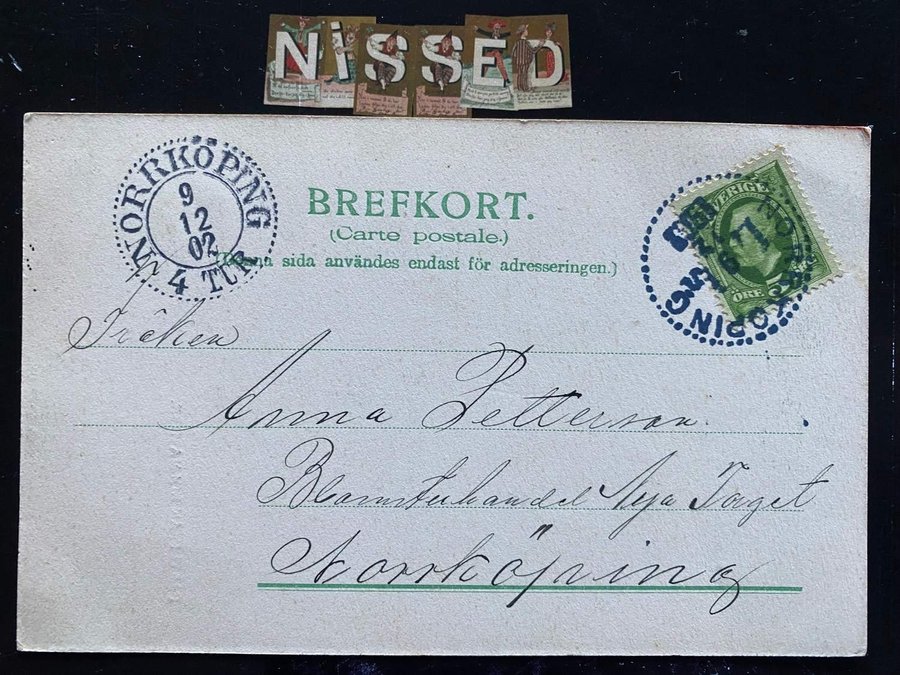 NiSSED
NORRKÖPING
9
12
02
4 TUR
BREFKORT.
(Carte postale.)
(Denna sida användes endast för adresseringen.)
SVERIGE
ÖRE 5
NORRKÖPING
Fröken
Anna Petterson
Blomsterhandel Nya Torget
Norrköping